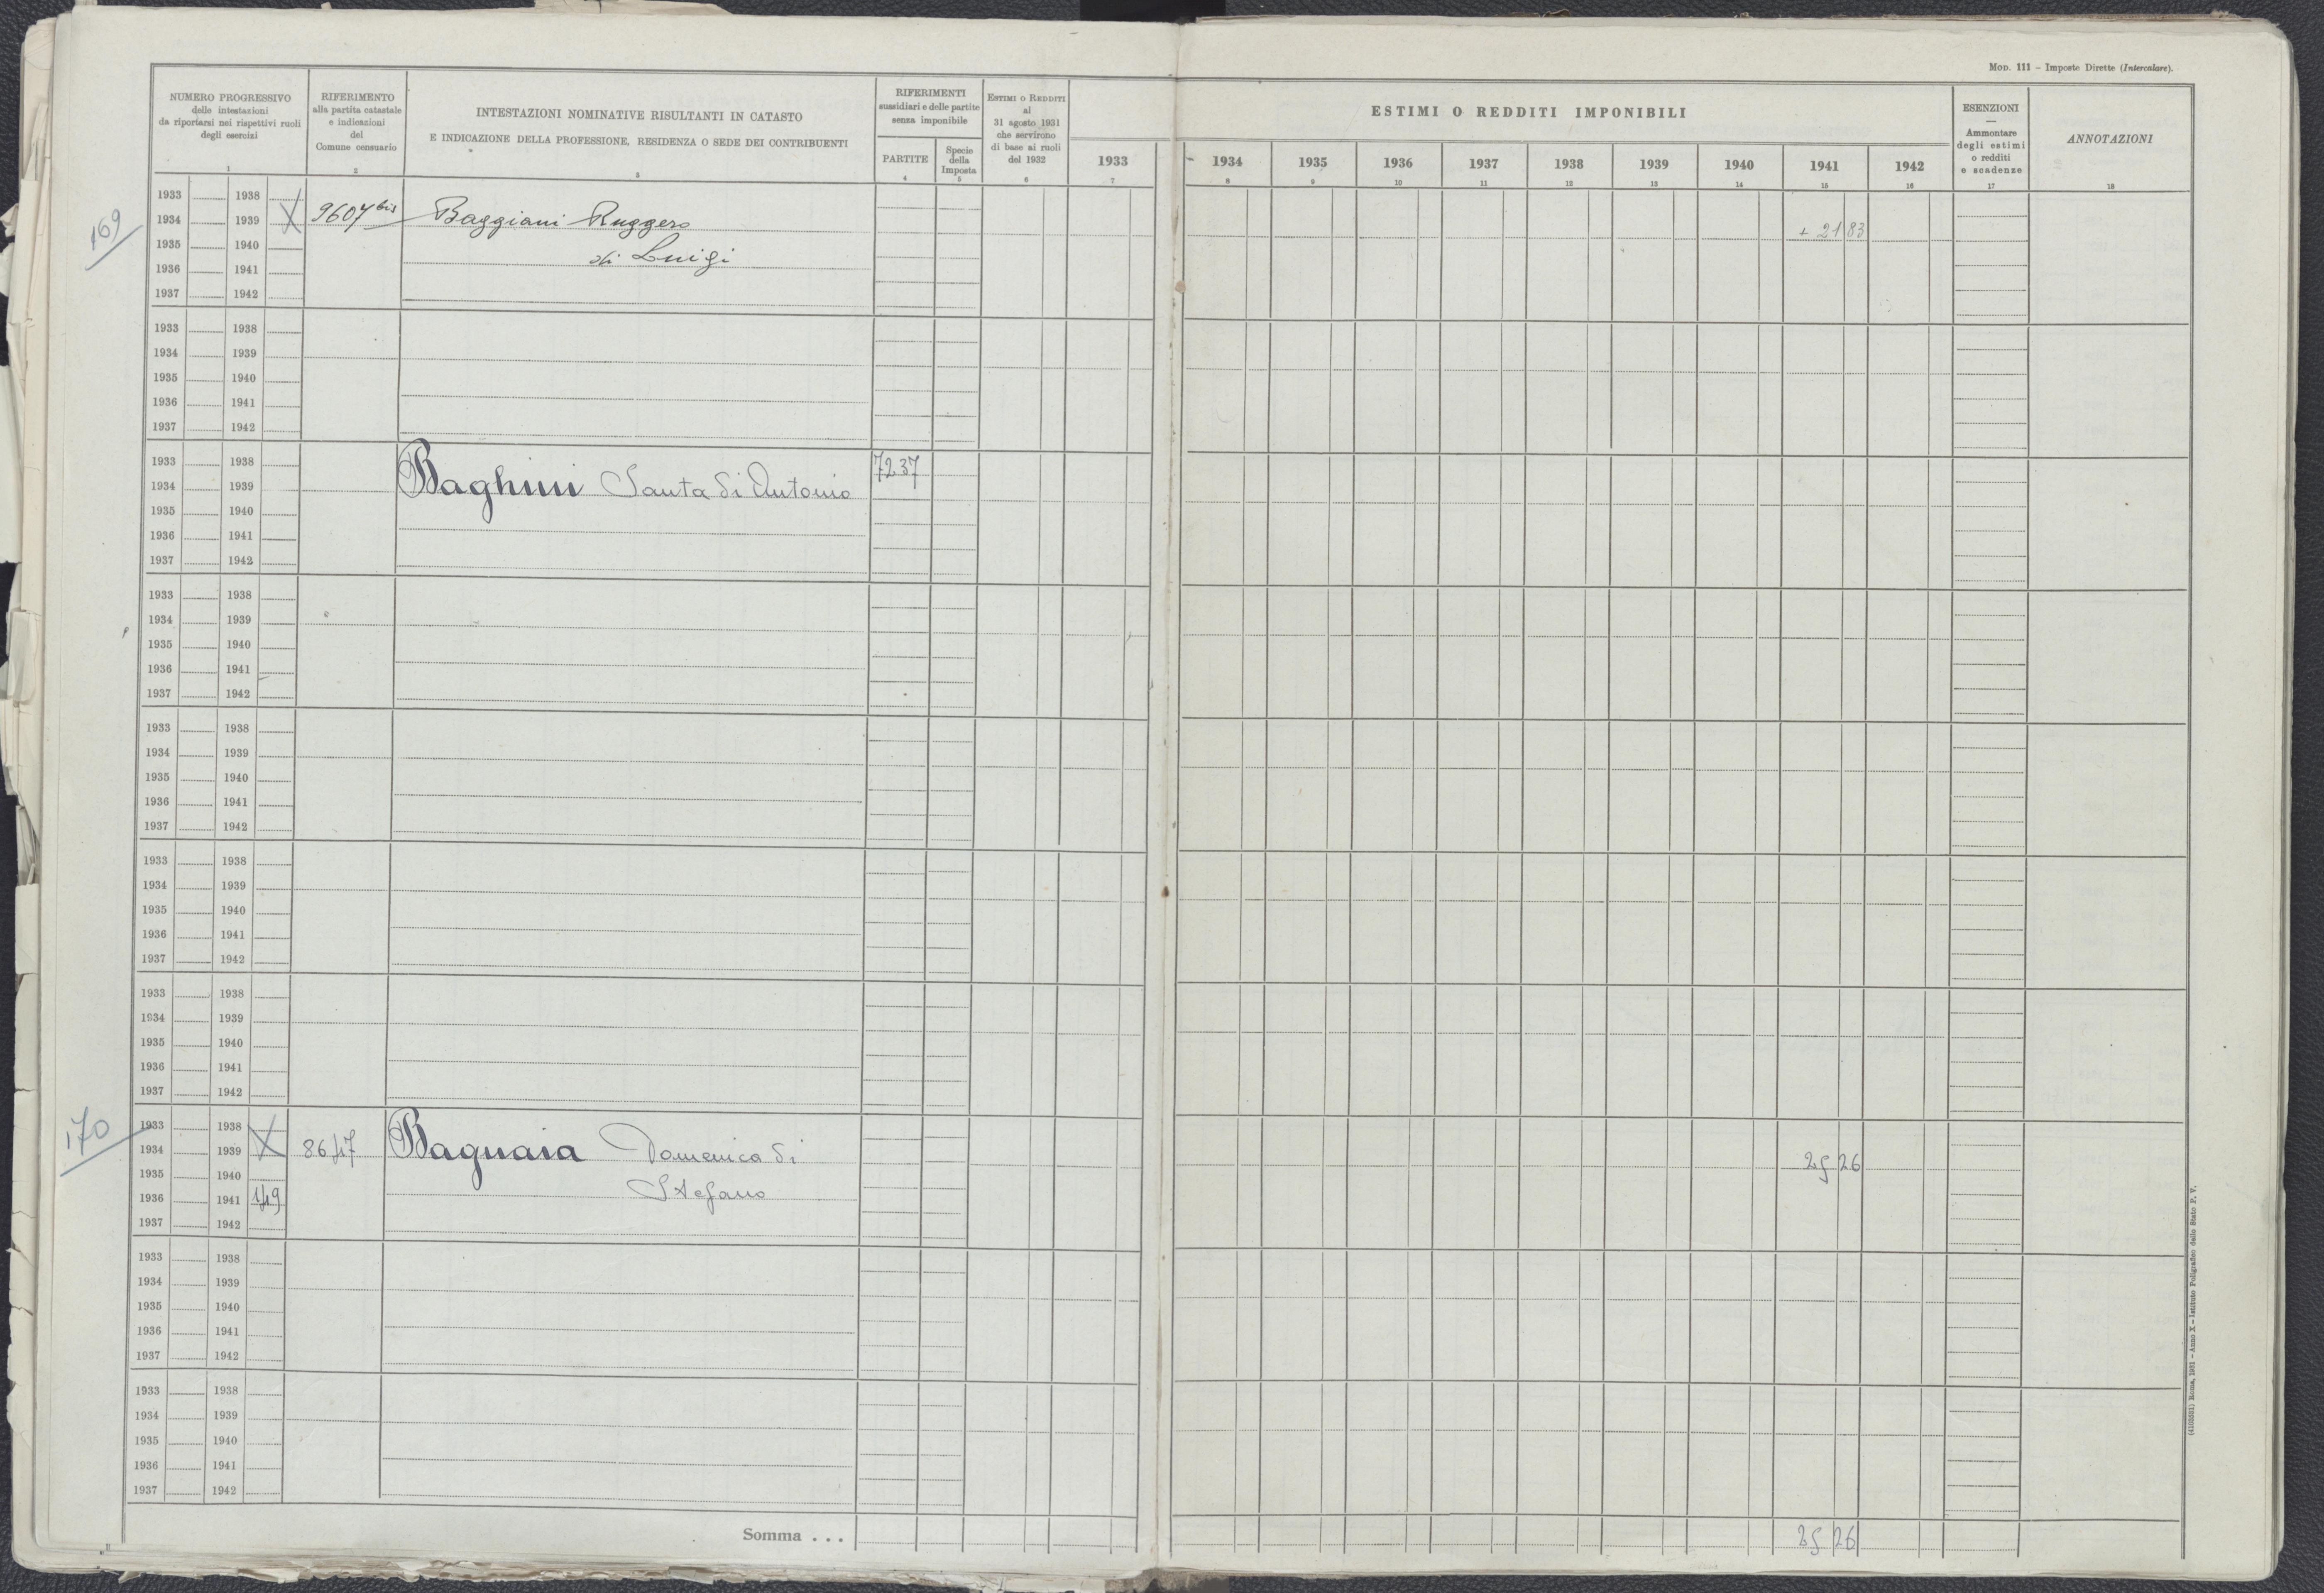 MOD. 111 – Imposte Dirette (Intercalare).
NUMERO PROGRESSIVO
delle intestazioni
da riportarsi nei rispettivi ruoli
degli esercizi
1
RIFERIMENTO
alla partita catastale
e indicazioni
del
Comune censuario
2
INTESTAZIONI NOMINATIVE RISULTANTI IN CATASTO
E INDICAZIONE DELLA PROFESSIONE, RESIDENZA O SEDE DEI CONTRIBUENTI
3
RIFERIMENTI
sussidiari e delle partite
senza imponibile
PARTITE
4
Specie
della
Imposta
5
ESTIMI O REDDITI
al
31 agosto 1931
che servirono
di base ai ruoli
del 1932
6
ESTIMI O REDDITI IMPONIBILI
1933 1934 1935 1936 1937 1938 1939 1940 1941 1942
7 8 9 10 11 12 13 14 15 16
ESENZIONI
—
Ammontare
degli estimi
o redditi
e scadenze
17
ANNOTAZIONI
18
169
1933 1938
1934 1939 X 9607 bis Baggiani Ruggero + 21 83
1935 1940 di Luigi
1936 1941
1937 1942
1933 1938
1934 1939
1935 1940
1936 1941
1937 1942
1933 1938 7237
1934 1939 Baghini Santa di Antonio
1935 1940
1936 1941
1937 1942
1933 1938
1934 1939
1935 1940
1936 1941
1937 1942
1933 1938
1934 1939
1935 1940
1936 1941
1937 1942
1933 1938
1934 1939
1935 1940
1936 1941
1937 1942
1933 1938
1934 1939
1935 1940
1936 1941
1937 1942
170
1933 1938
1934 1939 X 8647 Bagnaia Domenica di 25 26
1935 1940
1936 1941 149 Stefano
1937 1942
1933 1938
1934 1939
1935 1940
1936 1941
1937 1942
1933 1938
1934 1939
1935 1940
1936 1941
1937 1942
Somma . . . 25 26
(4105031) Roma, 1931 – Anno X – Istituto Poligrafico dello Stato P. V.